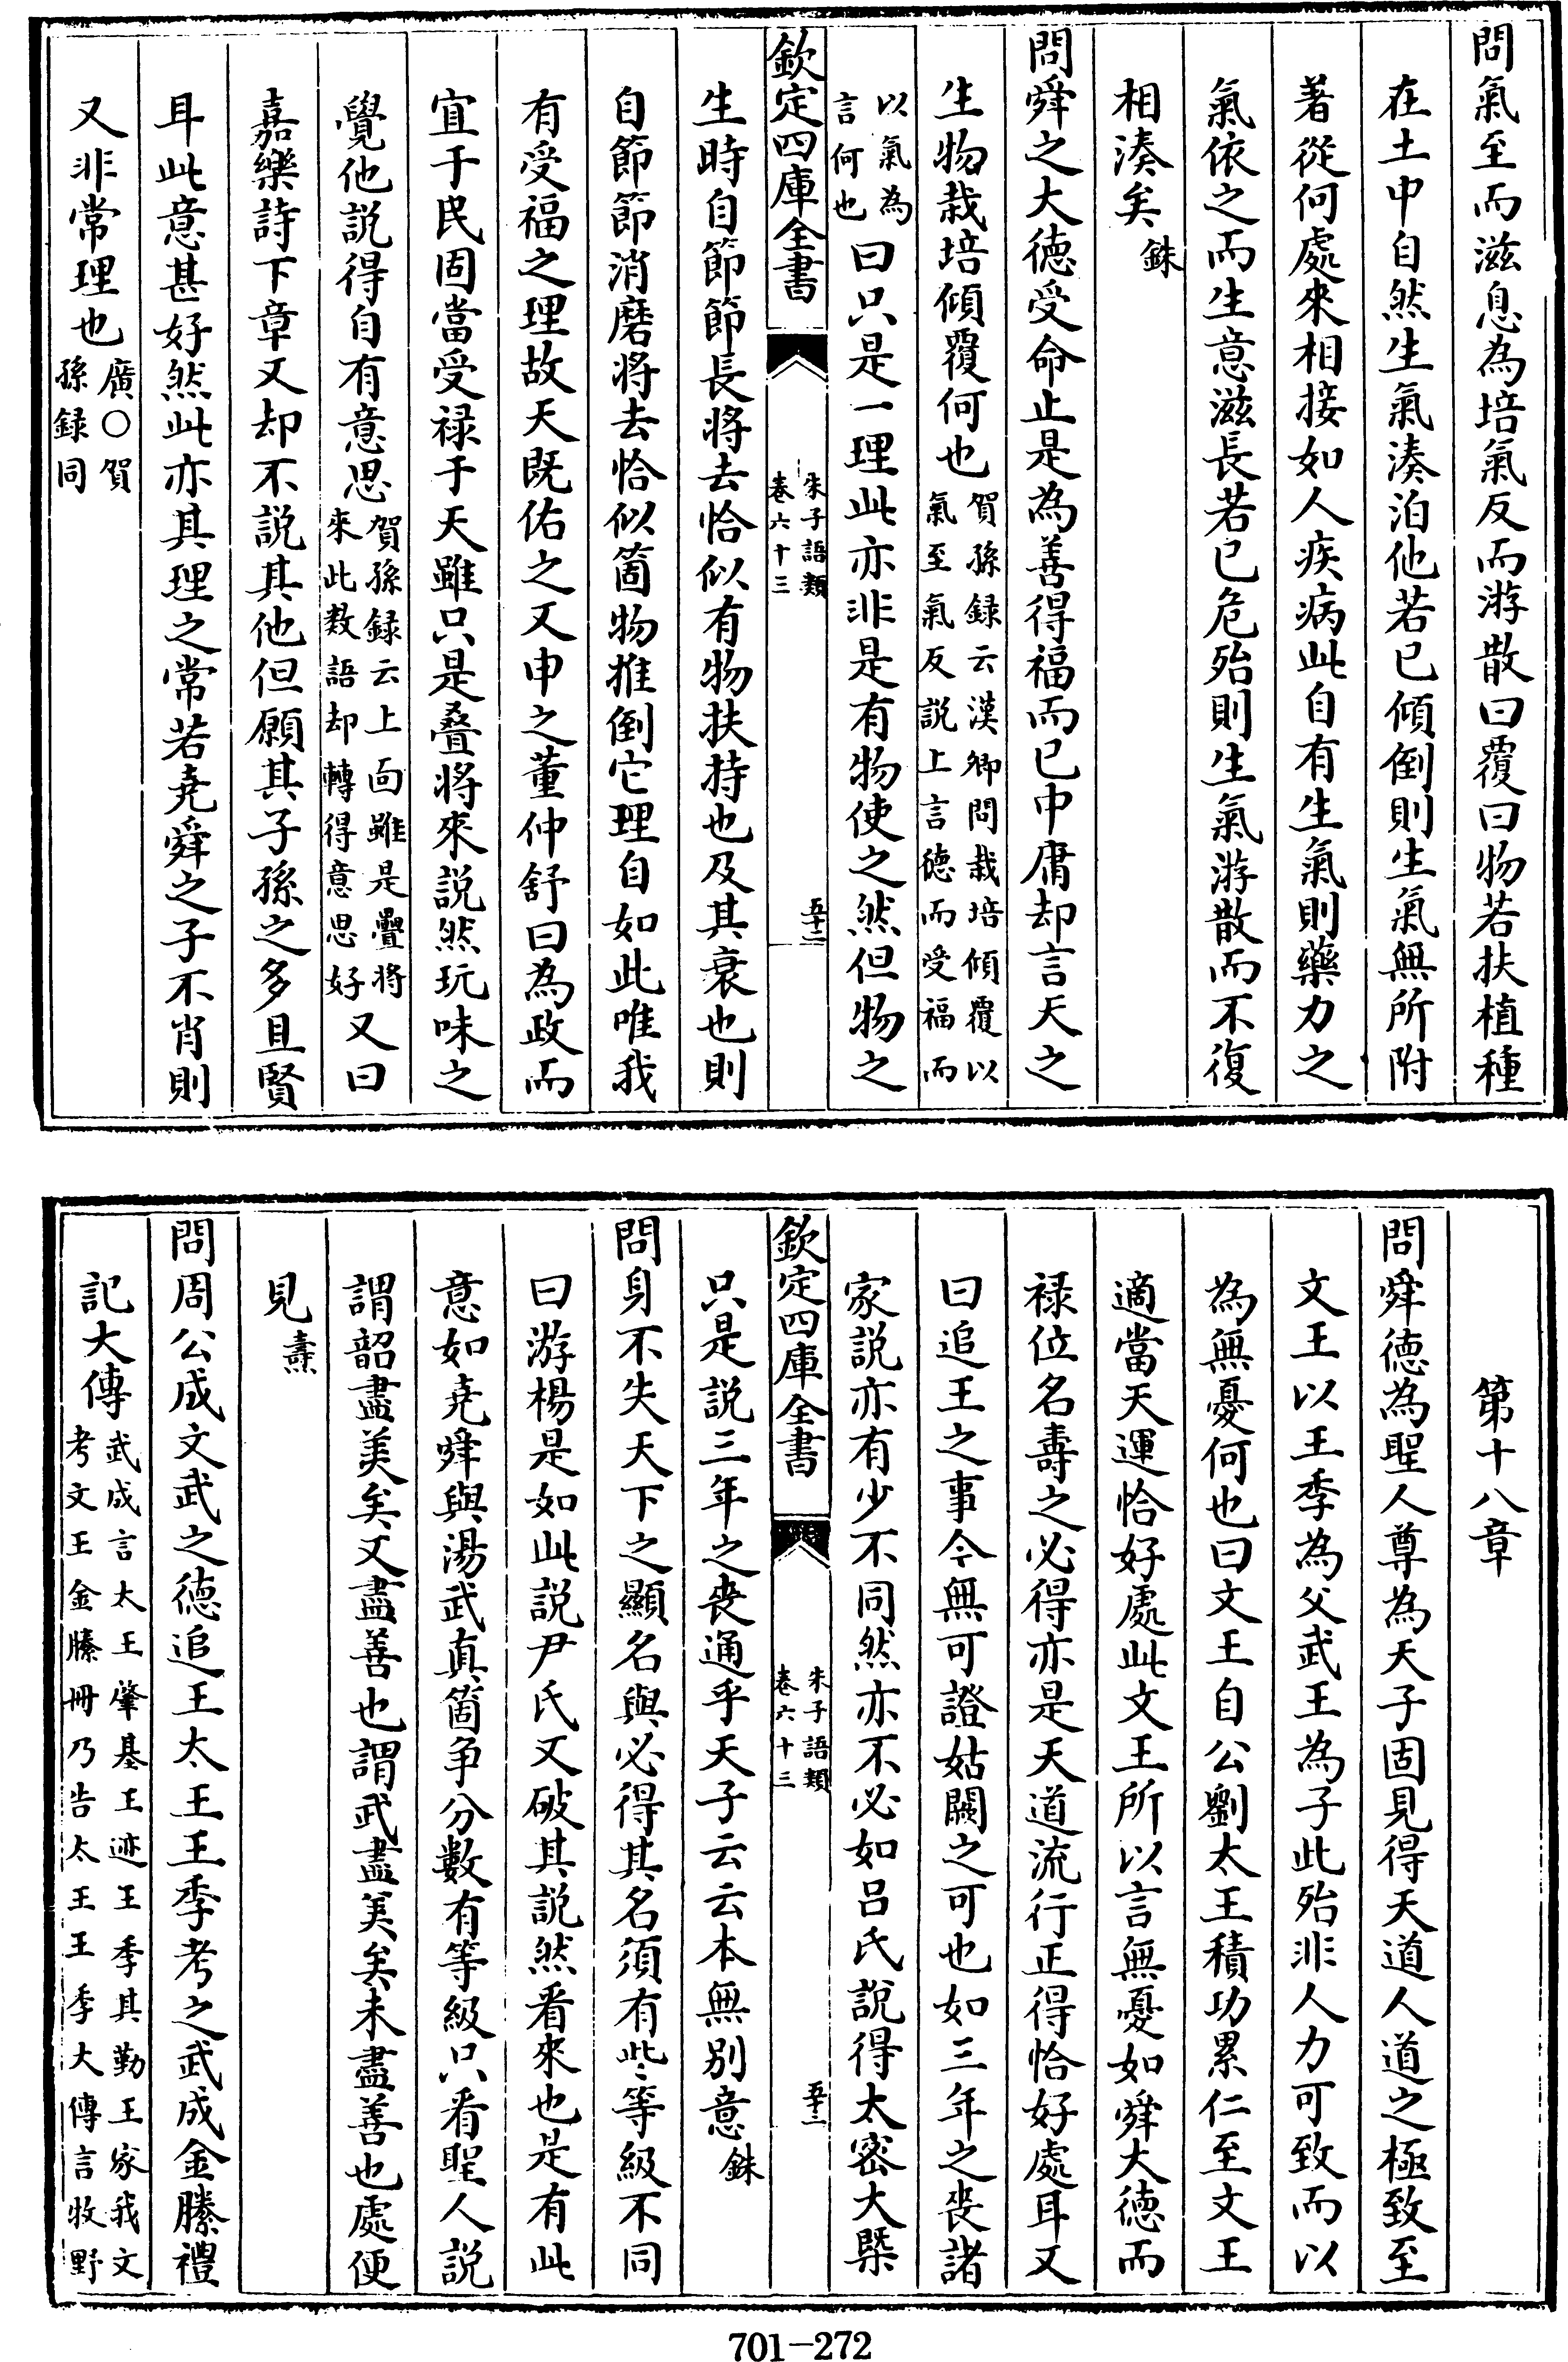 問氣至而滋息為培氣反而游散曰覆曰物若扶植種
在土中自然生氣湊泊他若已傾倒則生氣無所附
著從何處來相接如人疾病此自有生氣則藥力之
氣依之而生意滋長若已危殆則生氣游散而不復
相湊矣銖
問舜之大德受命止是為善得福而已中庸却言天之
生物栽培傾覆何也賀孫録云漢卿問栽培傾覆以氣至氣反説上言德而受福而
以氣為言何也曰只是一理此亦非是有物使之然但物之
欽定四庫全書 朱子語類卷六十三 五十二
生時自節節長將去恰似有物扶持也及其衰也則
自節節消磨將去恰似箇物推倒它理自如此唯我
有受福之理故天既佑之又申之董仲舒曰為政而
宜于民固當受禄于天雖只是疊將來説然玩味之
覺他説得自有意思賀孫録云上面雖是疊將來此數語却轉得意思好又曰
嘉樂詩下章又却不説其他但願其子孫之多且賢
耳此意甚好然此亦其理之常若堯舜之子不肖則
又非常理也廣○賀孫録同
第十八章
問舜德為聖人尊為天子固見得天道人道之極致至
文王以王季為父武王為子此殆非人力可致而以
為無憂何也曰文王自公劉太王積功累仁至文王
適當天運恰好處此文王所以言無憂如舜大德而
禄位名壽之必得亦是天道流行正得恰好處耳又
曰追王之事今無可證姑闕之可也如三年之喪諸
家説亦有少不同然亦不必如吕氏説得太密大槩
欽定四庫全書 朱子語類卷六十三 五十三
只是説三年之喪通乎天子云云本無别意銖
問身不失天下之顯名與必得其名須有些等級不同
曰游楊是如此説尹氏又破其説然看來也是有此
意如堯舜與湯武真箇争分數有等級只看聖人説
謂韶盡美矣又盡善也謂武盡美矣未盡善也處便
見燾
問周公成文武之德追王太王王季考之武成金縢禮
記大傳武成言太王肇基王迹王季其勤王家我文考文王金縢冊乃告太王王季大傳言牧野
701-272